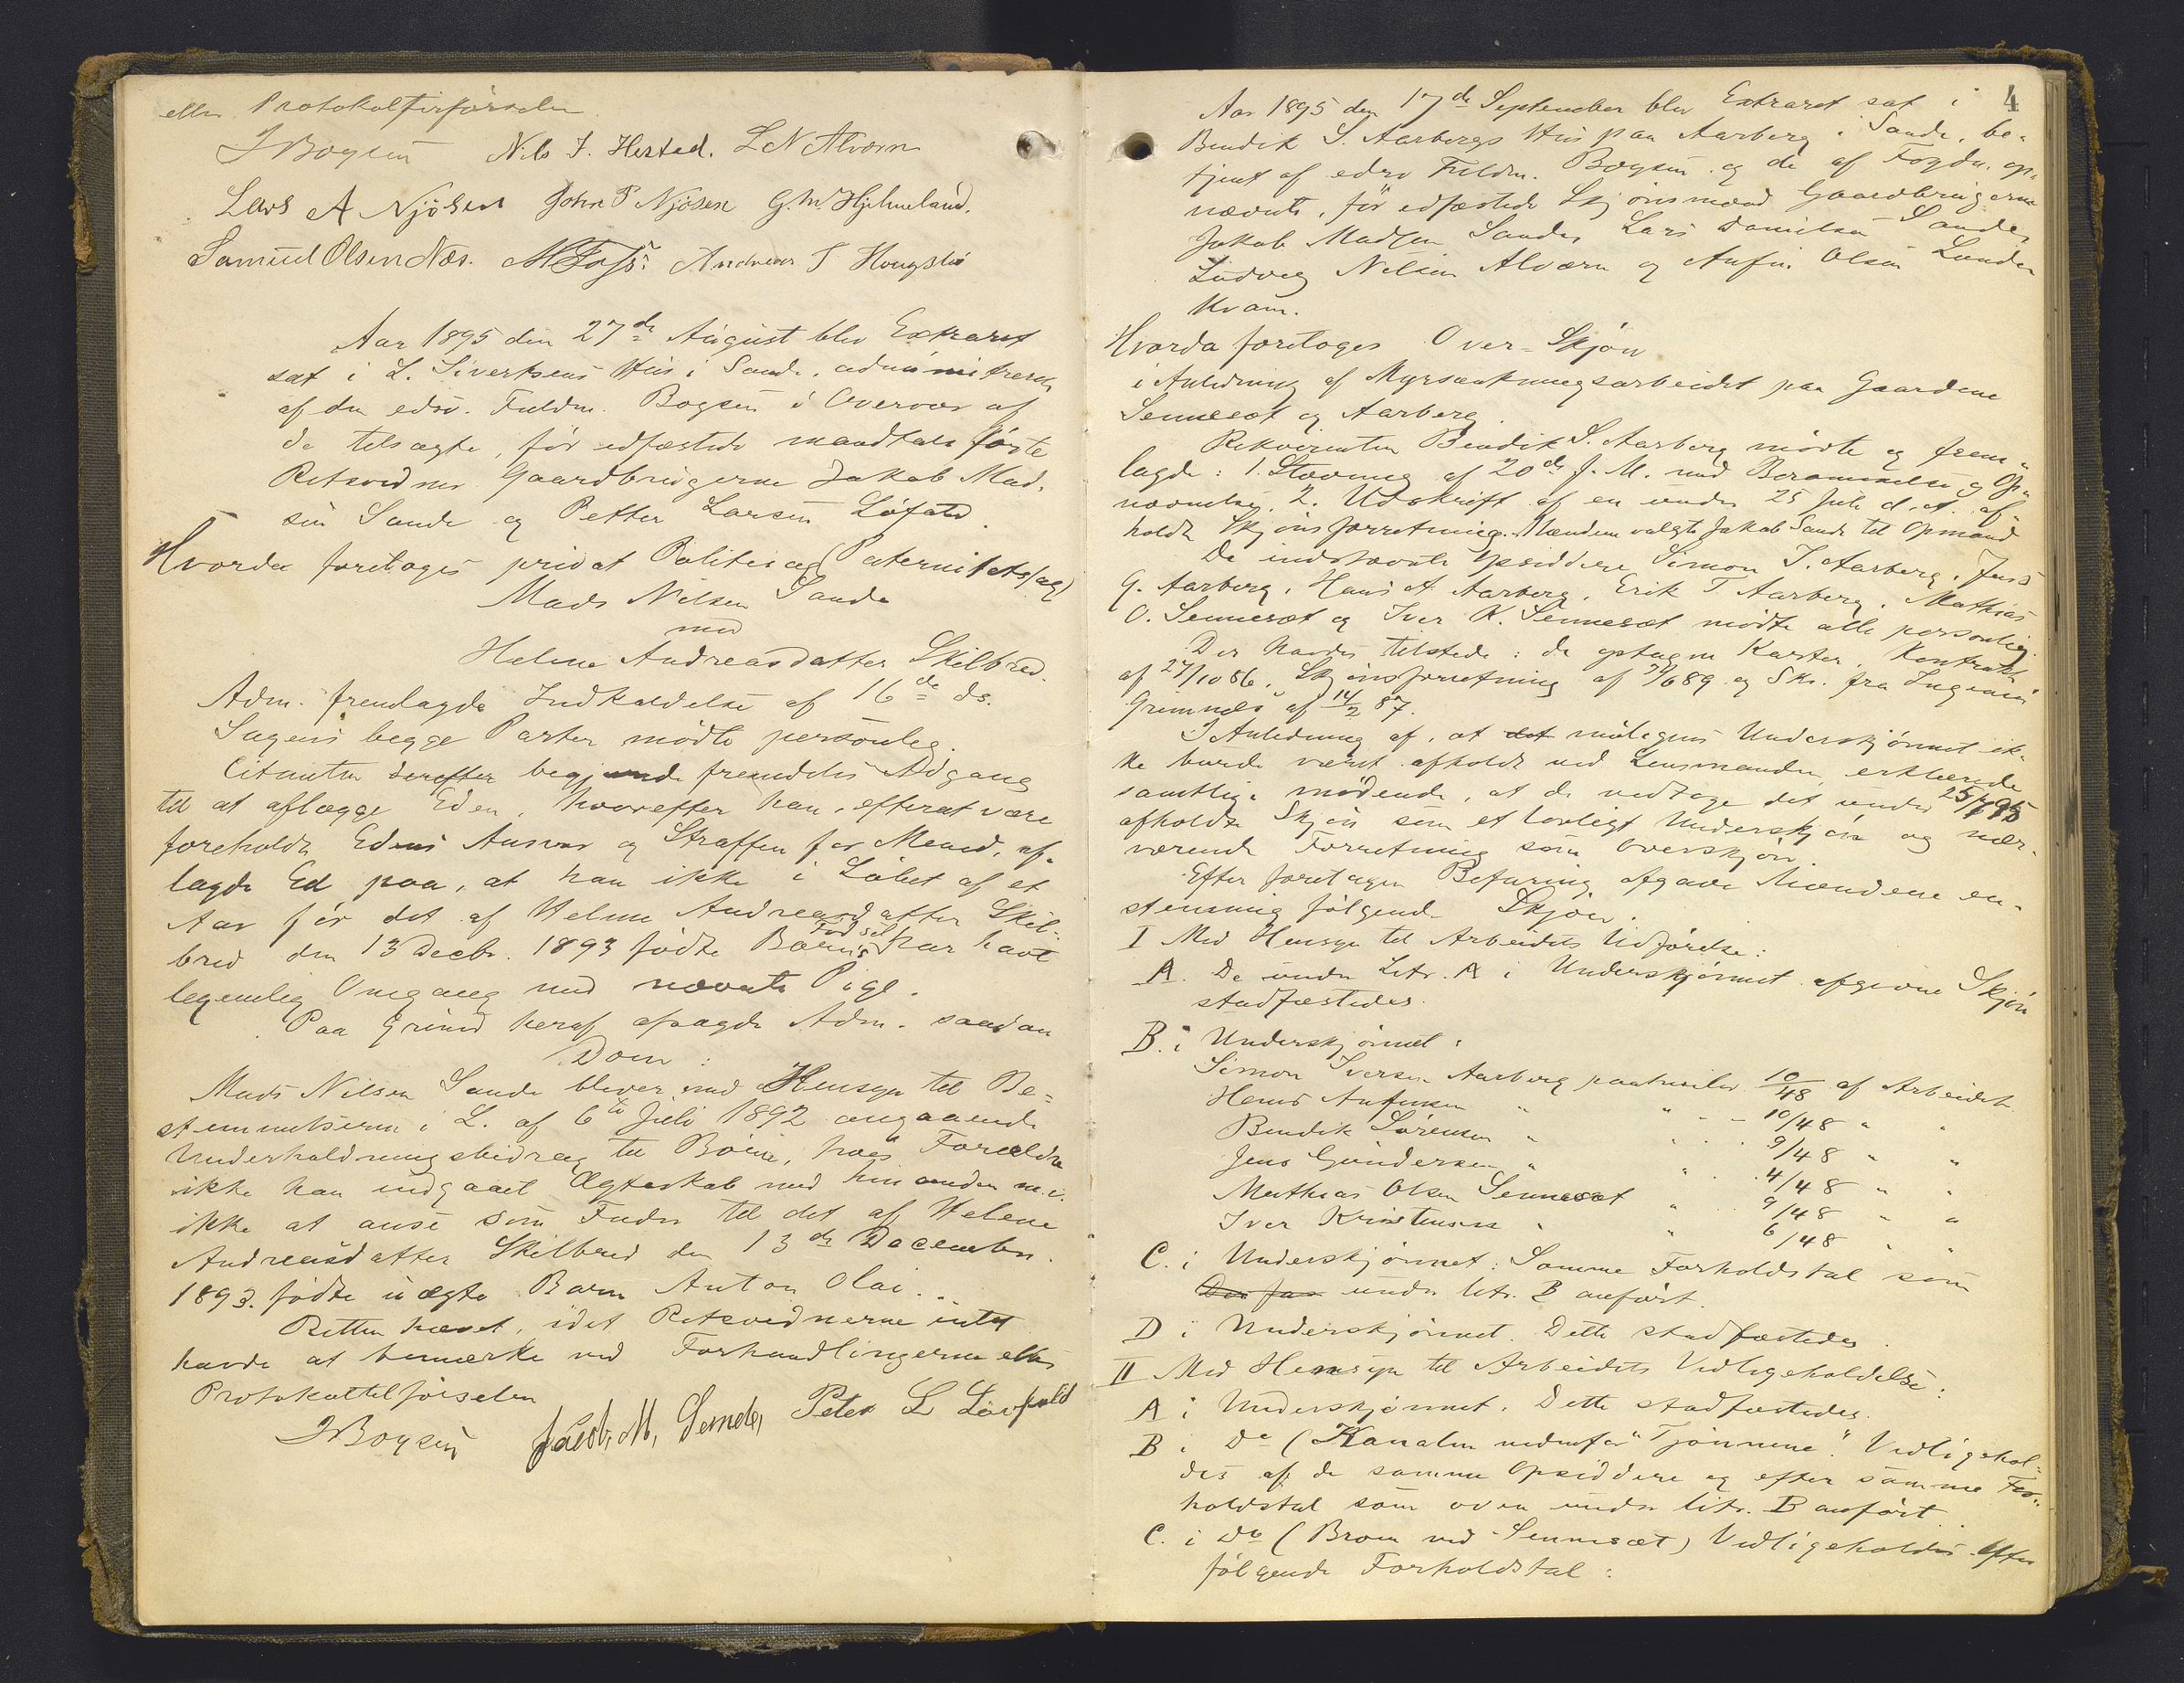 eller Protokoltilførselen
J Boysen Nils J. Hersted. L N Alværn
Lars A Njösen John P Njösen G. M. Hjelmeland.
Samuel Olsen Næs. M Foss. Andreas T
Aar 1895 den 27de August blev Extraret
sat i L. Siverksens Hus i Sande, administreret
af den edsv. Fuldm. Boysen i Overvær af
de tilsagte, før edfæstede mandtals førte
Retsvidner Gaardbrugerne Jakob Mad-
sen Sande og Petter Larsen Löfald.
Hvorda foretoges privat Politisag (Paternitetssag)
Mads Nilsen Sande
mod
Helene Andreasdatter Skilbred.
Adm. fremlagde Indkaldelse af 16de ds.
Sagens begge Parter mødte personlig.
Citanten derefter begjærede fremdeles Adgang
til at aflægge Eden, hvorefter han, efterat være
foreholdt Edens Ansvar og Straffen for Mened, af-
lagde Ed paa, at han ikke i Løbet af et
Aar før det af Helene Andreasdatter Skil-
bred den 13 Decbr. 1893 fødte Barns Fødsel har havt
legemlig Omgang med nævnte Pige.
Paa Grund heraf afsagde Adm. saadan
Dom:
Mads Nilsen Sande bliver med Hensyn til Be-
stemmelserne i L. af 6te Juli 1892 angaaende
Underholdningsbidrag til Børn, hvis Forældre
ikke han indgaaet Ægteskab med hinanden m.v.
ikke at anse som Fader til det af Helene
Andreasdatter Skilbred den 13de December
1893. fødte uægte Barn Anton Olai.
Retten hævet, idet Retsvidnerne intet
havde at bemærke ved Forhandlingerne eller
Protokoltilførselen
J Boysen Jacob, M, Sande, Peter L Løvfald
4
Aar 1895 den 17de September blev Extraret sat i
Bendik S. Aarbergs Hus paa Aarberg i Sande, be-
tjent af edsv Fuldm. Boysen og de af Fogden op-
nævnte, før edfæstede Skjønsmænd Gaardbrugerne
Jakob Madsen Sande, Lars Danielsen Sande,
Ludvig Nilsen Alværn og Anfin Olsen Lunden
Kvam.
Hvorda foretoges Over-Skjøn
i Anledning af Myrsænkningsarbeidet paa Gaardene
Sennesæt og Aarberg.
Rekvirenten Bendik S. Aarberg mødte og frem-
lagde: 1. Stævning af 20de f. M. med Berammelse og Op-
nævnelse, 2. Udskrift af en under 25 Juli d. A. af-
holdt Skjønsforretning. Mændene valgte Jakob Sande til Opmand
De indstævnte Opsiddere Simon I. Aarberg, Jens
G. Aarberg, Hans A Aarberg, Erik T Aarberg, Mathias
O. Sennesæt og Iver K. Sennesæt mødte alle personlig.
Der havdes tilstede: de optagne Karter, Kontrakt
af 27/10 86, Skjønsforretning af 27/6 89 og Skr. fra Ingeniør
Grimnes af 14/2 87.
I Anledning af, at det muligens Underskjønnet ik-
ke burde været afholdt ved Lensmanden, erklærede
samtlige mødende, at de vedtage det under 25/7 95
afholdte Skjøn som et lovligt Underskjøn og nær-
værende Forretning som Overskjøn.
Efter foretagen Befaring afgave Mændene en-
stemmig følgende Skjøn:
I Med Hensyn til Arbeidets Udførelse:
A. De under Litr. A i Underskjønnet afgivne Skjøn
stadfæstedes.
B. i Underskjønnet:
Simon Iversen Aarberg paahviler 10/48 af Arbeidet.
Hans Anfinsen " " 10/48 " "
Bendik Sørensen " " 9/48 " "
Jens Gundersen " " 4/48 " "
Mathias Olsen Sennesæt " 9/48 " "
Iver Kristensen " " 6/48 " "
C. i Underskjønnet: Samme Forholdstal som
Der før under litr. B anført.
D i Underskjønnet. Dette stadfæstedes.
II Med Hensyn til Arbeidets Vedligeholdelse:
A i Underskjønnet. Dette stadfæstedes.
B i Do (Kanalen nedenfor "Tjønnene". Vedligehol-
des af de samme Opsiddere og efter samme For-
holdstal som oven under litr. B anført.
C. i Do (Broen ved Sennesæt) Vedligeholdes efter
følgende Forholdstal: